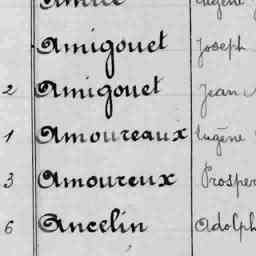 Amigouet Joseph
2 Amigouet Jean
1 Amoureaux Eugène
3 Amoureux Prosper
6 Ancelin Adolph